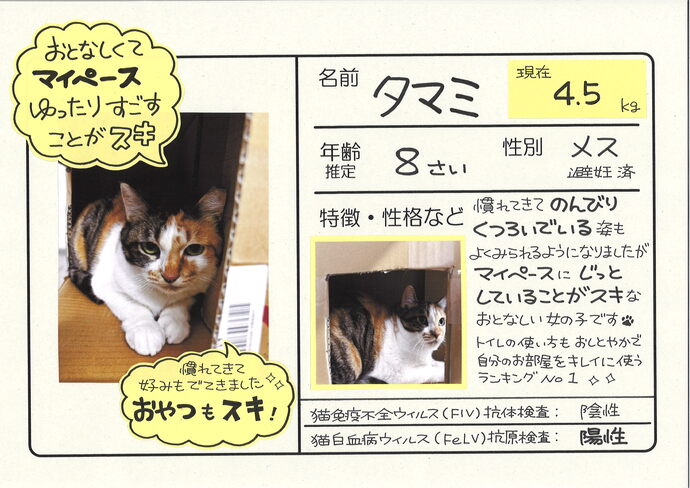 おとなしくて
マイペース
ゆったりすごす
ことがスキ
慣れてきて
好みもでてきました
おやつもスキ!
名前
タマミ
現在
4.5
kg
年齢
推定
8さい
性別
メス
避妊済
特徴・性格など
慣れてきてのんびり
くつろいでいる姿も
よくみられるようになりましたが
マイペースにじっと
していることがスキな
おとなしい女の子です
トイレの使い方もおしとやかで
自分のお部屋をキレイに使う
ランキングNo1
猫免疫不全ウィルス(FIV)抗体検査: 陰性
猫白血病ウィルス(FeLV)抗原検査: 陽性